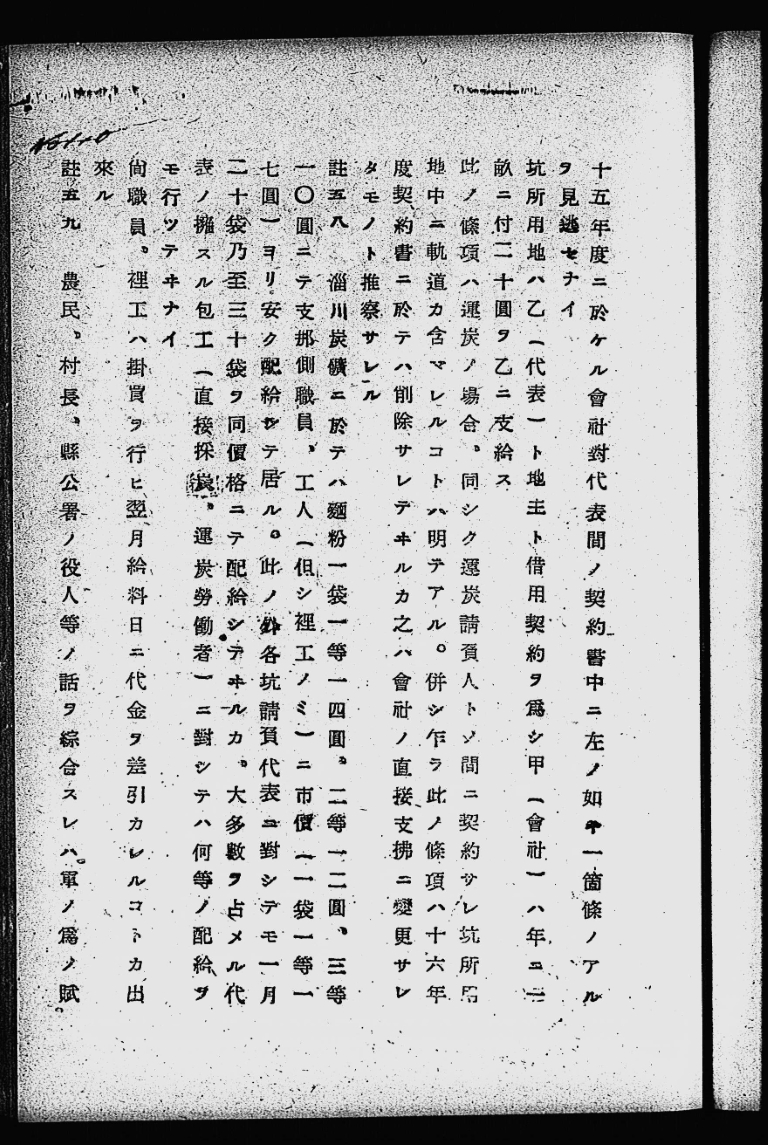 十五年度ニ於ケル會社對代表間ノ契約書中ニ左ノ如キ一箇條ノアル
ヲ見逃セナイ
坑所用地ハ乙(代表)ト地主ト借用契約ヲ爲シ甲(會社)ハ年ニ一
畝ニ付二十圓ヲ乙ニ支給ス
此ノ條項ハ運炭ノ場合、同シク運炭請負人トノ間ニ契約サレ坑所用
地中ニ軌道カ含マレルコトハ明テアル。併シ乍ラ此ノ條項ハ十六年
度契約書ニ於テハ削除サレテヰルカ之ハ會社ノ直接支拂ニ變更サレ
タモノト推察サレル
註五八 淄川炭礦ニ於テハ麵粉一袋一等一四圓、二等一二圓、三等
一〇圓ニテ支那側職員、工人(但シ裡工ノミ)ニ市價(一袋一等一
七圓)ヨリ安ク配給シテ居ル。此ノ外各坑請負代表ニ對シテモ一月
二十袋乃至三十袋ヲ同價格ニテ配給シテヰルカ、大多數ヲ占メル代
表ノ擁スル包工(直接採炭、運炭勞働者)ニ對シテハ何等ノ配給ヲ
モ行ツテヰナイ
尚職員、裡工ハ掛買ヲ行ヒ翌月給料日ニ代金ヲ差引カレルコトカ出
來ル
註五九 農民、村長、縣公署ノ役人等ノ話ヲ綜合スレハ軍ノ爲ノ賦